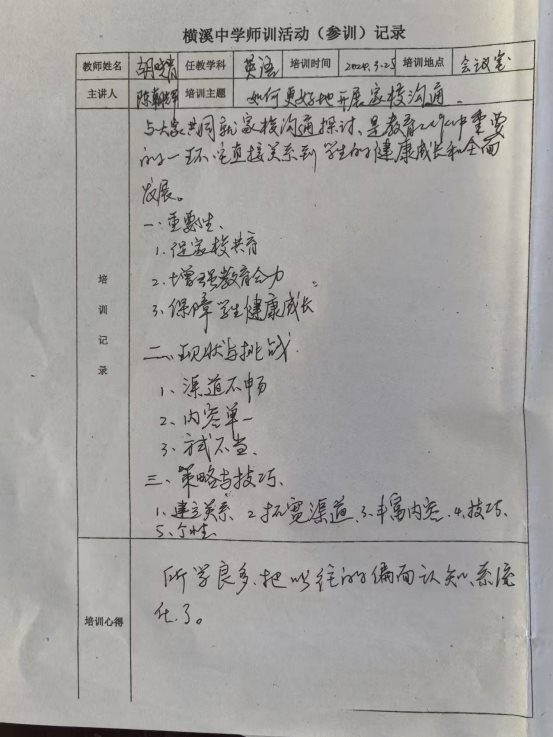 横溪中学师训活动（参训）记录
教师姓名 胡晓青 任教学科 英语 培训时间 2024.3.25 培训地点 会议室
主讲人 培训主题 如何更好地开展家校沟通。
与大家共同就家校沟通探讨、是教育工作中重要
的一环、它直接关系到学生的健康成长和全面
发展。
一、重要性、
1、促家校共育
2、增强教育合力
3、保障学生健康成长
二、现状与挑战
1、渠道不畅
2、内容单一
3、方式不当、
三、策略与技巧、
1、建立关系 2、拓宽渠道、3、丰富内容、4、技巧、
5、个性
培训记录
所学良多、把以往的片面认知、系统
化了。
培训心得